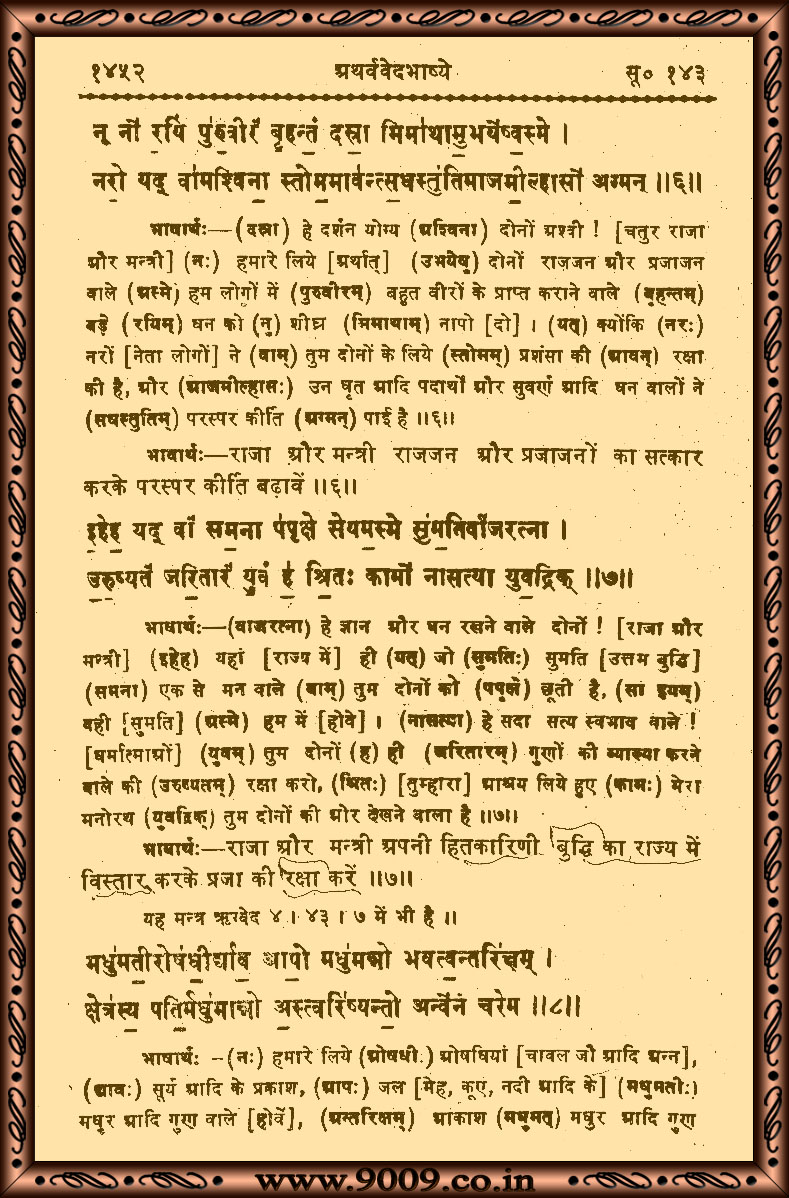 १४५२ अथर्ववेदभाष्ये सू० १४३
नू नो॑ र॒यिं पु॑रु॒वीरं॑ बृ॒हन्तं॒ दस्रा॒ मिमा॑थामु॒भये॑ष्व॒स्मे ।
नरो॒ यद् वा॑मश्विना॒ स्तोम॒माव॑न्त्स॒धस्तु॑तिमाजमी॒ल्हासो॑ अग्मन् ॥६॥
भाषार्थः—(दस्रा) हे दर्शन योग्य (अश्विना) दोनों अश्वी ! [चतुर राजा
और मन्त्री] (नः) हमारे लिये [अर्थात्] (उभयेषु) दोनों राजजन और प्रजाजन
वाले (अस्मे) हम लोगों में (पुरुवीरम्) बहुत वीरों के प्राप्त कराने वाले (बृहन्तम्)
बड़े (रयिम्) धन को (नु) शीघ्र (मिमाथाम्) नापो [दो] । (यत्) क्योंकि (नरः)
नरों [नेता लोगों] ने (वाम्) तुम दोनों के लिये (स्तोमम्) प्रशंसा की (आवन्) रक्षा
की है, और (आजमील्हासः) उन घृत आदि पदार्थों और सुवर्ण आदि धन वालों ने
(सधस्तुतिम्) परस्पर कीर्ति (अग्मन्) पाई है ॥६॥
भावार्थः—राजा और मन्त्री राजजन और प्रजाजनों का सत्कार
करके परस्पर कीर्ति बढ़ावें ॥६॥
इ॒हेह॒ यद् वां॑ सम॒ना प॑पृ॒क्षे सेयम॒स्मे सु॑म॒तिर्वा॑जरत्ना ।
उ॒रु॒ष्यतं॑ जरि॒तारं॑ यु॒वं ह॑ श्रि॒तः कामो॑ नासत्या युव॒द्रिक् ॥७॥
भाषार्थः—(वाजरत्ना) हे ज्ञान और धन रखने वाले दोनों ! [राजा और
मन्त्री] (इहेह) यहां [राज्य में] ही (यत्) जो (सुमतिः) सुमति [उत्तम बुद्धि]
(समना) एक से मन वाले (वाम्) तुम दोनों को (पपृक्षे) छूती है, (सा इयम्)
वही [सुमति] (अस्मे) हम में [होवे] । (नासत्या) हे सदा सत्य स्वभाव वाले !
[धर्मात्माओं] (युवम्) तुम दोनों (ह) ही (जरितारम्) गुणों की व्याख्या करने
वाले की (उरुष्यतम्) रक्षा करो, (श्रितः) [तुम्हारा] आश्रय लिये हुए (कामः) मेरा
मनोरथ (युवद्रिक्) तुम दोनों की ओर देखने वाला है ॥७॥
भावार्थः—राजा और मन्त्री अपनी हितकारिणी बुद्धि का राज्य में
विस्तार करके प्रजा की रक्षा करें ॥७॥
यह मन्त्र ऋग्वेद ४ । ४३ । ७ में भी है ॥
मधु॑मती॒रोष॑धी॒र्द्याव॒ आपो॒ मधु॑मन्नो भवत्व॒न्तरि॑क्षम् ।
क्षेत्र॑स्य॒ पति॒र्मधु॑मान्नो अ॒स्त्वरि॑ष्यन्तो॒ अन्वे॑नं चरेम ॥८॥
भाषार्थः –(नः) हमारे लिये (ओषधीः) ओषधियां [चावल जौ आदि अन्न],
(द्यावः) सूर्य आदि के प्रकाश, (आपः) जल [मेह, कूए, नदी आदि के] (मधुमतीः)
मधुर आदि गुण वाले [होवें], (अन्तरिक्षम्) आकाश (मधुमत्) मधुर आदि गुण
www.9009.co.in